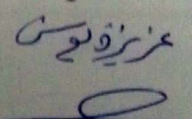 عزيزة يوسف